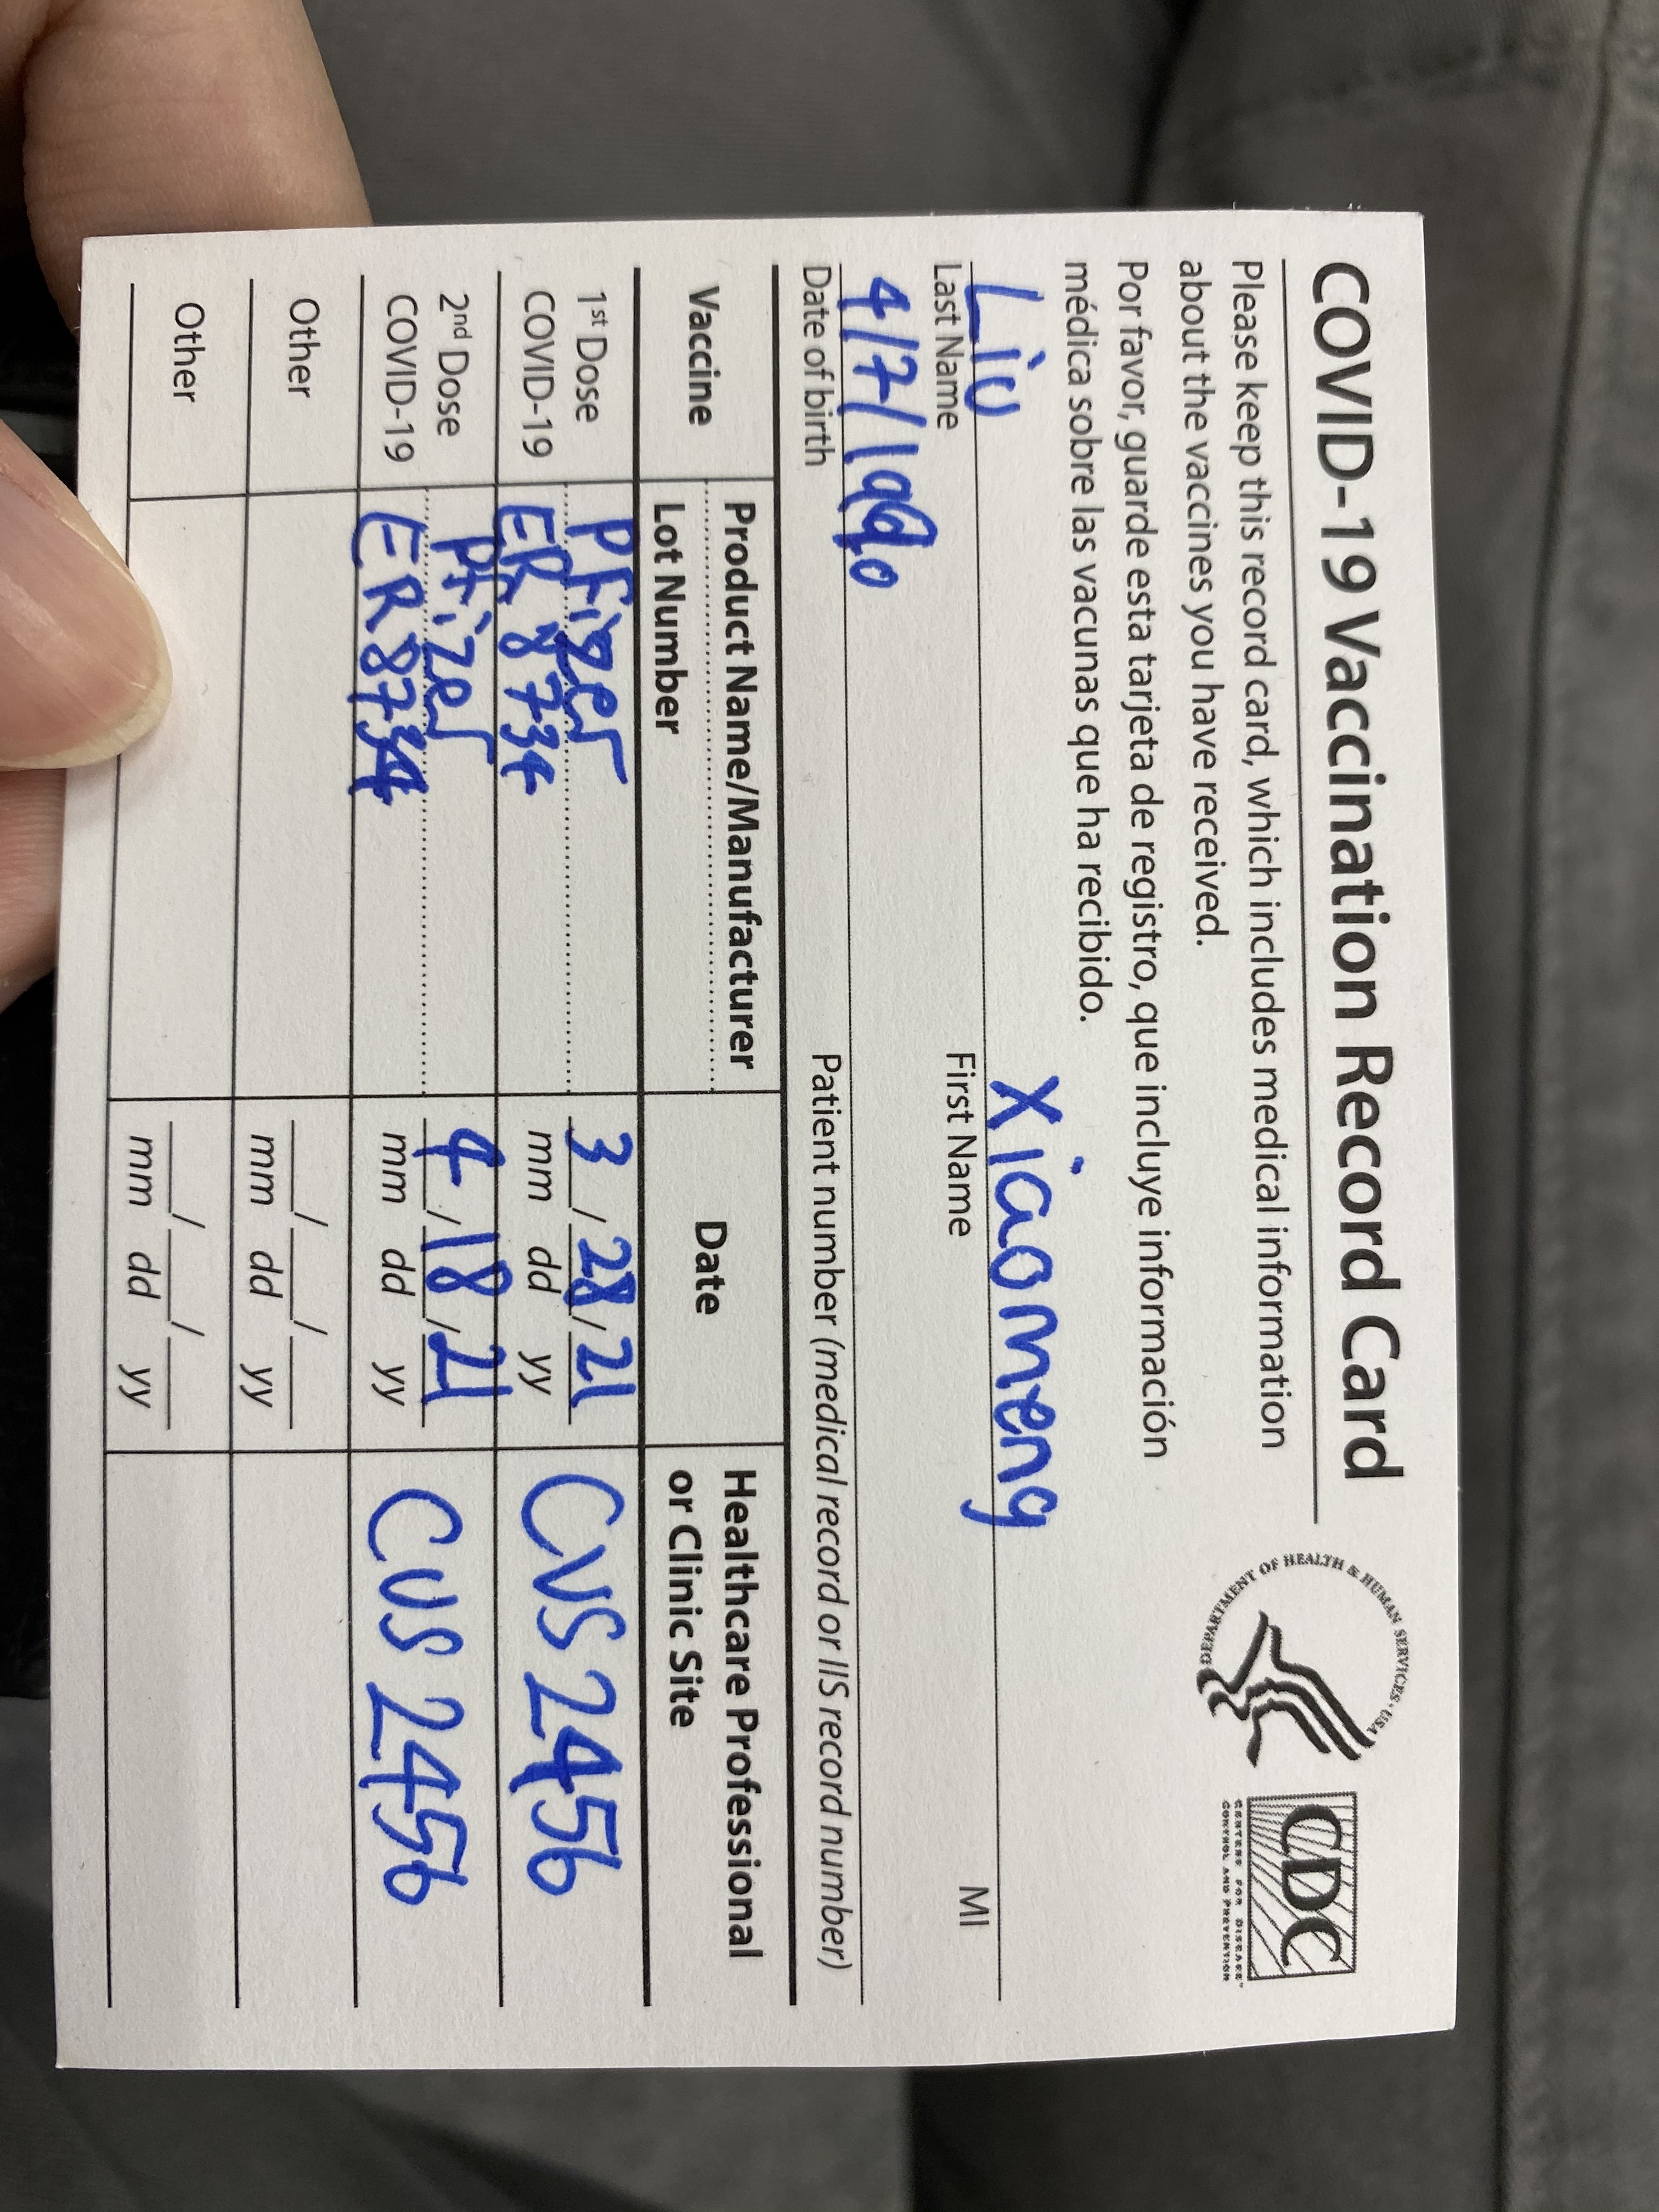 COVID-19 Vaccination Record Card
DEPARTMENT OF HEALTH & HUMAN SERVICES, USA
CDC
CENTERS FOR DISEASE
CONTROL AND PREVENTION
Please keep this record card, which includes medical information
about the vaccines you have received.
Por favor, guarde esta tarjeta de registro, que incluye información
médica sobre las vacunas que ha recibido.
Liu Xiaomeng
Last Name First Name MI
4/7/1990
Date of birth Patient number (medical record or IIS record number)
Vaccine Product Name/Manufacturer Date Healthcare Professional
Lot Number or Clinic Site
1st Dose Pfizer 3/28/21 CVS 2456
COVID-19 ER8734 mm dd yy
2nd Dose Pfizer 4/18/21 CVS 2456
COVID-19 ER8734 mm dd yy
Other __/__/__
mm dd yy
Other __/__/__
mm dd yy